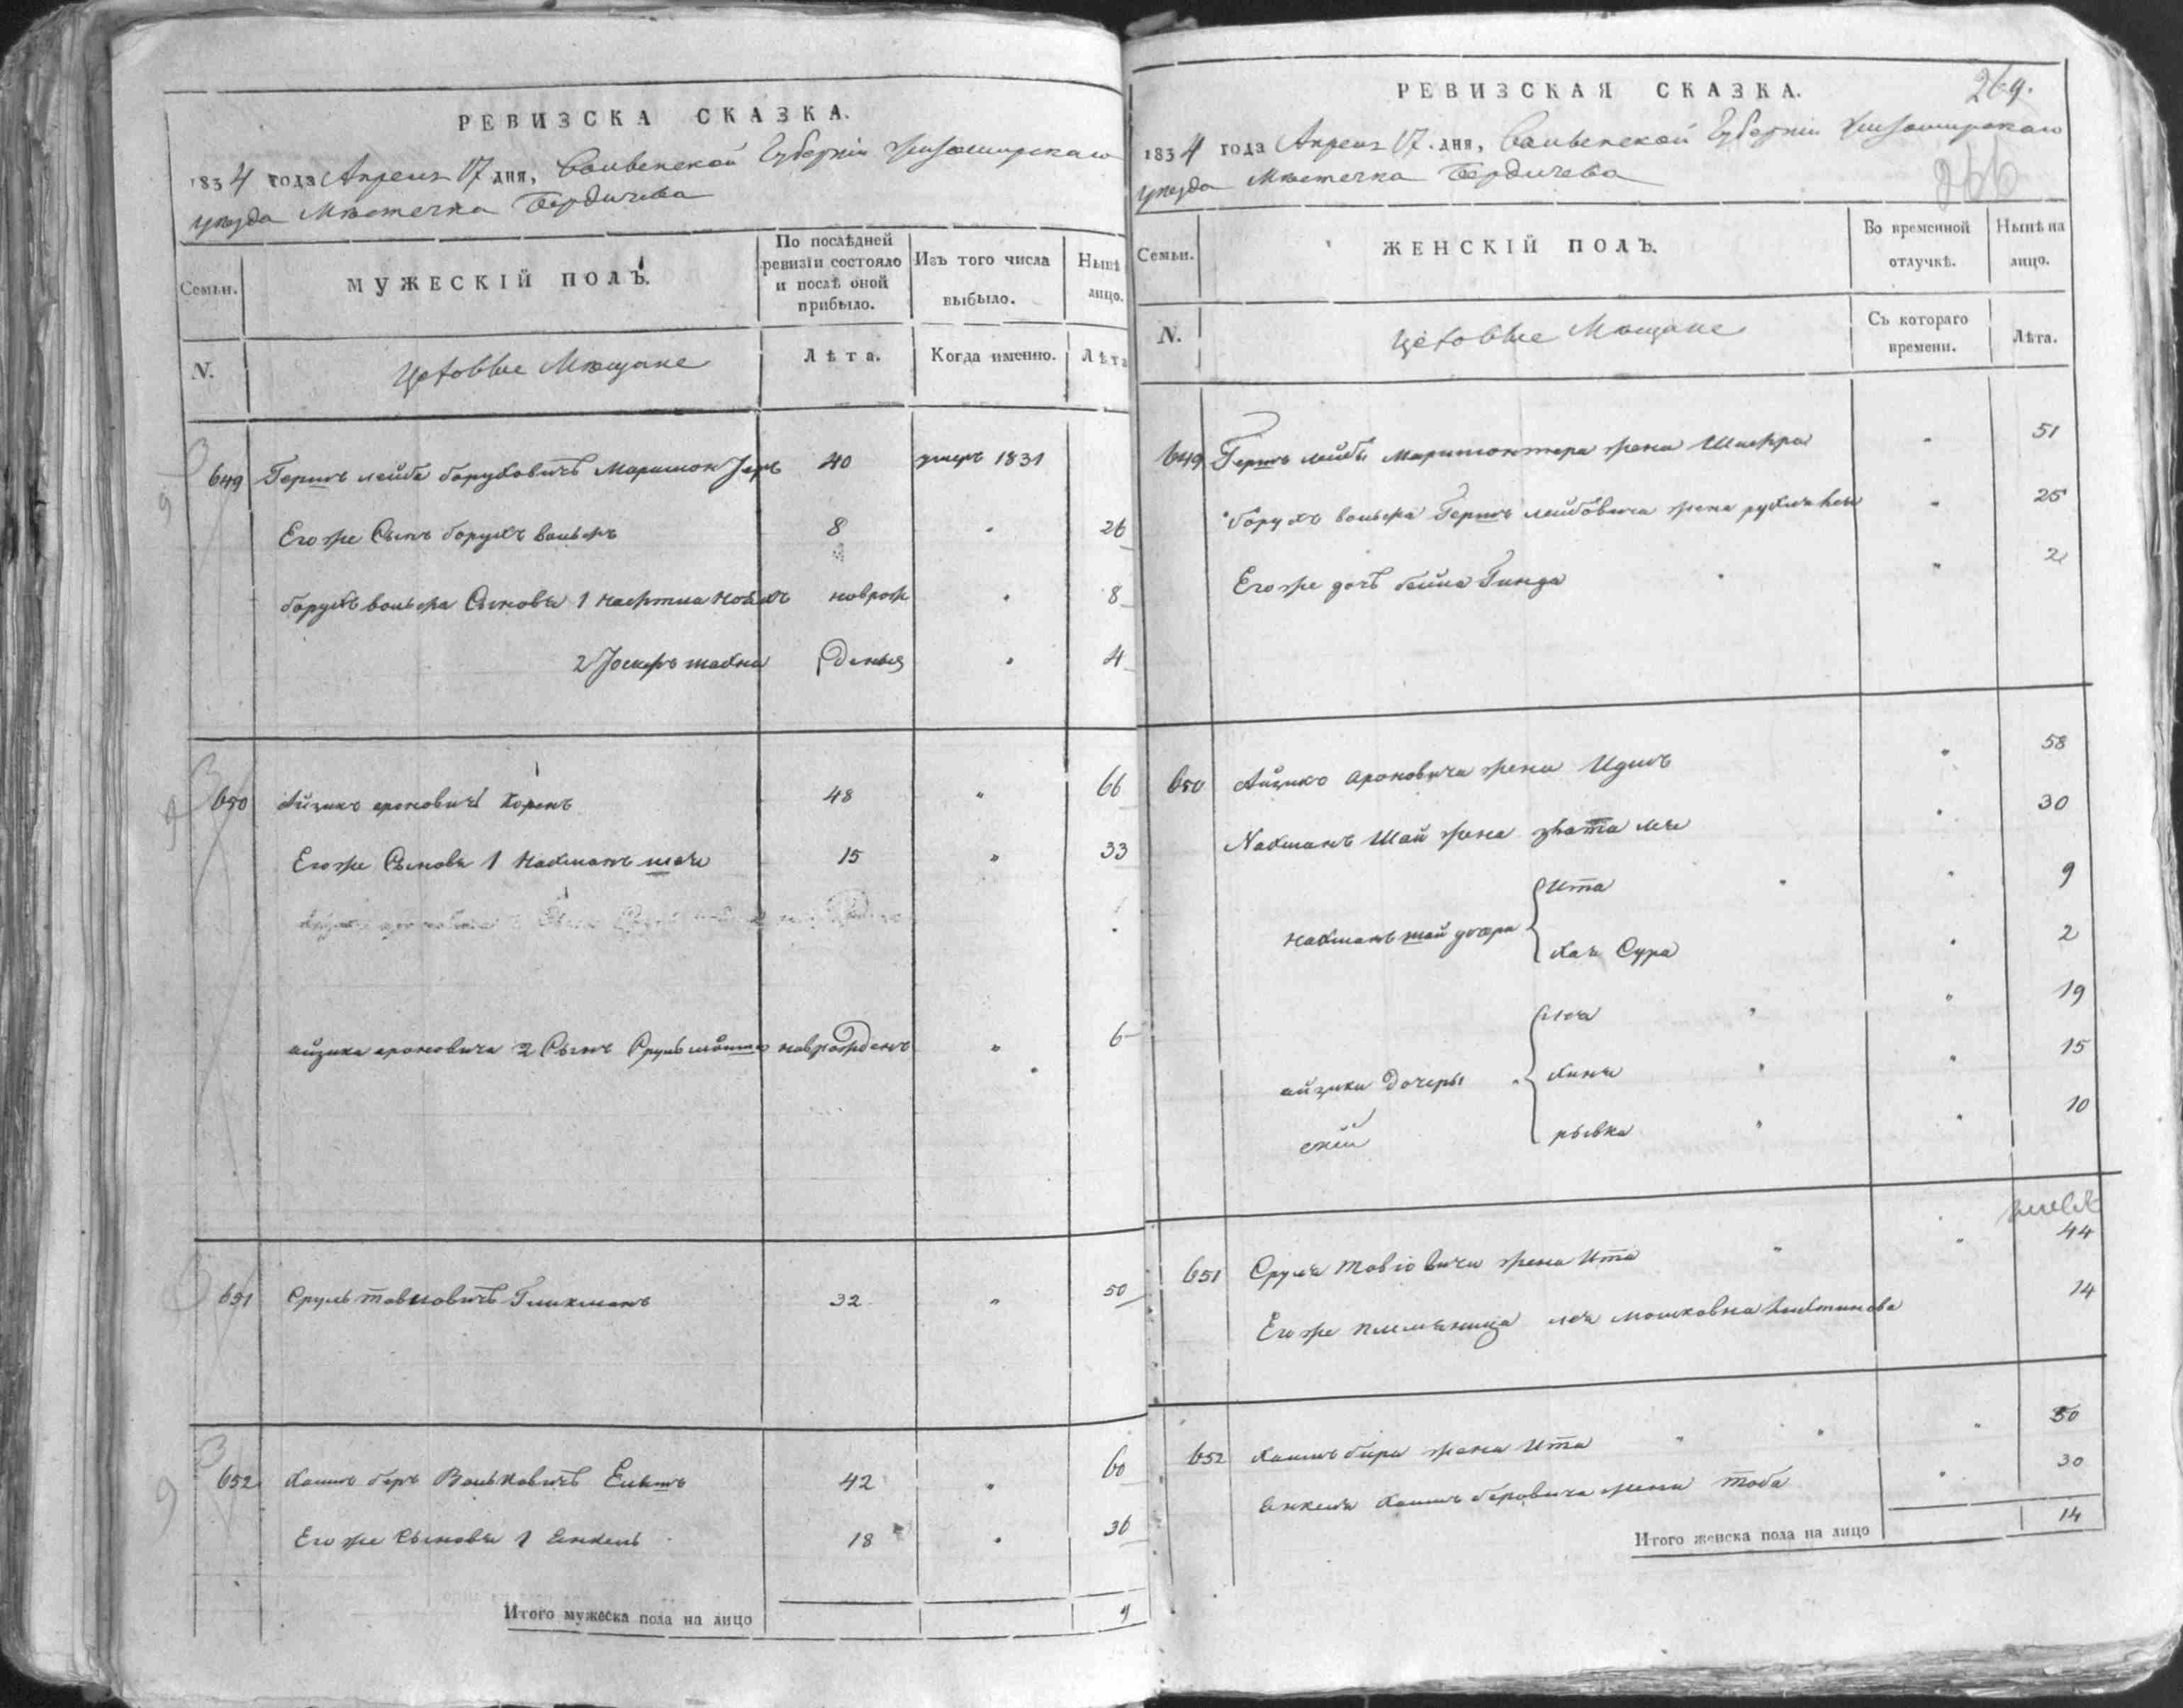 РЕВИЗСКА СКАЗКА.
1834 года Апреля 17 дня, Волынской Губерніи Житомирскаго
уезда Местечка Бердичева
Семьи.
МУЖЕСКІЙ ПОЛЪ.
По послѣдней
ревизіи состояло
и послѣ оной
прибыло.
Изъ того числа
выбыло.
Нынѣ
лицо.
N.
Цеховые Мещане
Лѣта.
Когда именно.
Лѣта
649 Гершъ лейба боруховичъ 40 умеръ 1831
Его же Сынъ борухъ вольфъ 8 " 26
борухъ вольфа Сыновья 1 новрож " 8
2 Іосифъ денъ " 4
650 Айзикъ ароновичъ Коренъ 48 " 66
Его же Сыновья 1 Нахманъ шая 15 " 33
айзика ароновича 2 Сынъ Сруль новорожденъ " 6
651 Сруль товиовичъ Гликманъ 32 " 50
652 Хаимъ беръ Вольковичъ 42 " 60
Его же Сыновья 1 Янкель 18 " 36
Итого мужеска пола на лицо 9
РЕВИЗСКАЯ СКАЗКА.
269.
1834 года Апреля 17. дня, Волынской Губерніи Житомирскаго
уезда Местечка Бердичева
266
Семьи.
ЖЕНСКІЙ ПОЛЪ.
Во временной
отлучкѣ.
Нынѣ на
лицо.
N.
Цеховые Мещане
Съ котораго
времени.
Лѣта.
649 Гершъ лейбы жена Шифра " 51
борухъ вольфа Гершъ лейбовича жена " 25
Его же дочь бейла Гинда " 2
650 Айзика Ароновича жена Идись " 58
Нахманъ Шаи жена злата лея " 30
Ита " 9
Нахманъ шаи дочери
хая Сура " 2
лея " 19
айзика дочеры хина " 15
рывка " 10
651 Сруля Товіовича жена Ита " 44
Его же племяница лея мошковна 14
652 Хаимъ бера жена Ита " 50
Янкеля Хаимъ беровича жена Тоба " 30
Итого женска пола на лицо 14